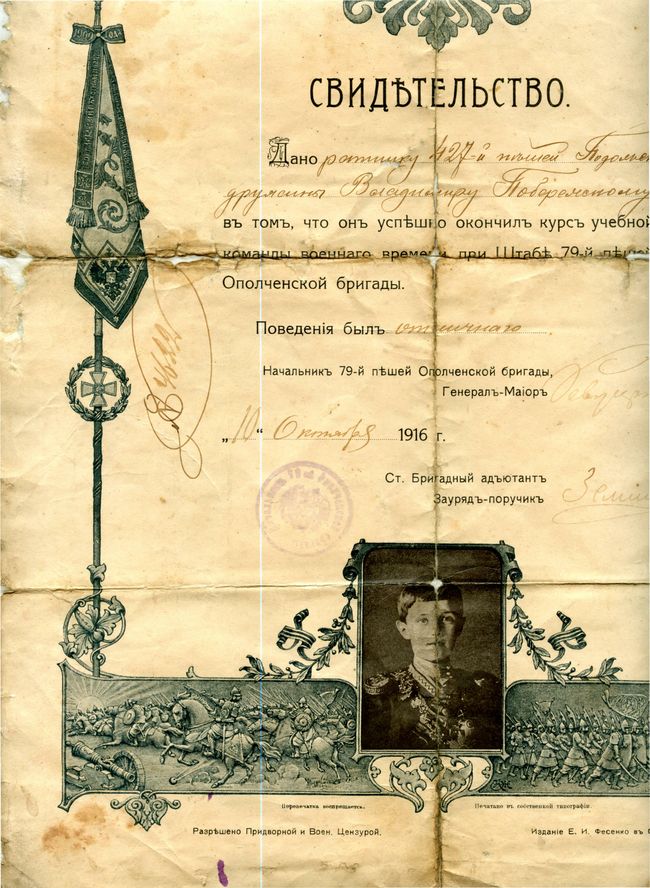 СВИДѢТЕЛЬСТВО.
Дано ратнику 427-й пѣшей
дружины Владимиру
въ томъ, что онъ успѣшно окончилъ курсъ учебной
команды военнаго времени при Штабѣ 79-й пѣшей
Ополченской бригады.
Поведенія былъ отличнаго.
Начальникъ 79-й пѣшей Ополченской бригады,
Генералъ-Маіоръ
„10“ Октября 1916 г.
Ст. Бригадный адъютантъ
Заурядъ-поручикъ
Перепечатка воспрещается.
Печатано въ собственной типографіи.
Разрѣшено Придворной и Воен. Цензурой.
Изданіе Е. И. Фесенко въ